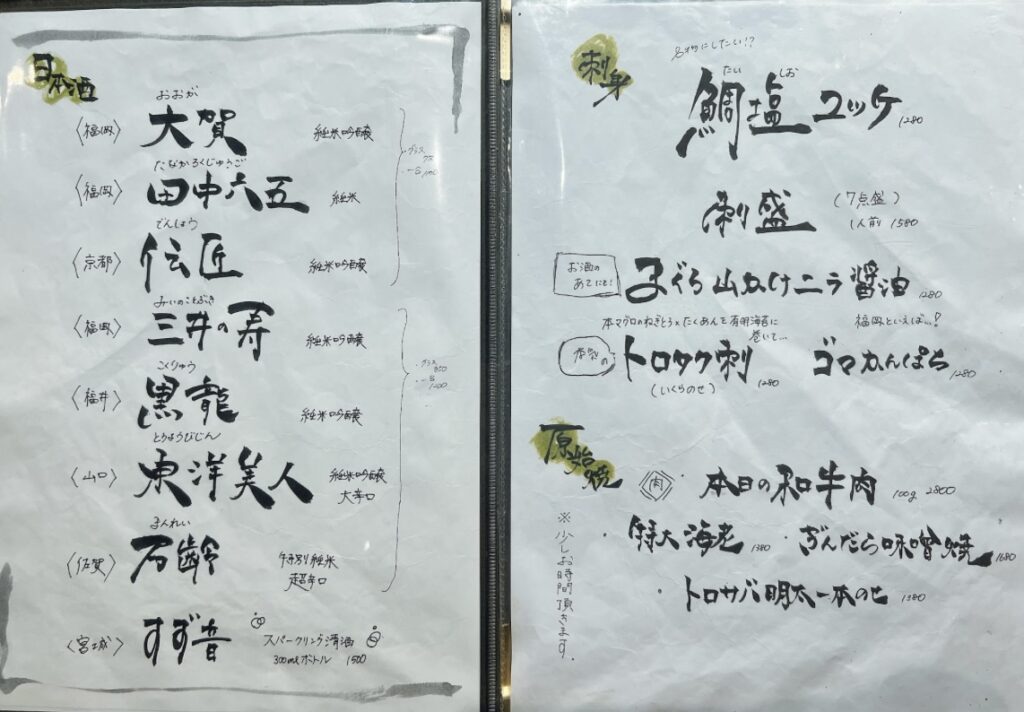 日本酒
おおが
〈福岡〉 大賀 純米吟醸
たなかろくじゅうご
〈福岡〉 田中六五 純米
でんしょう
〈京都〉 伝匠 純米吟醸
グラス
一合
みいのことぶき
〈福岡〉 三井の寿 純米吟醸
こくりゅう
〈福井〉 黒龍 純米吟醸
とうようびじん
〈山口〉 東洋美人 純米吟醸
大辛口
グラス 650
一合 1200
まんれい
〈佐賀〉 石齢 特別純米
超辛口
〈宮城〉 すず音 スパークリング清酒
300mlボトル 1500
刺身
名物にしたい!?
たい しお
鯛塩ユッケ 1280
刺盛 (7点盛)
1人前 1580
お酒の
あてにも!
まぐろ山かけニラ醤油 1280
本マグロのねぎとろ×たくあんを有明海苔に
巻いて…
トロタク刺 1280
(いくらのせ)
福岡といえば…!
ゴマかんぱち 1280
原始焼
肉 本日の和牛肉 100g 2800
・特大海老 1380 ・ぎんだら味噌焼 1680
・トロサバ明太一本のせ 1380
※少しお時間頂きます。